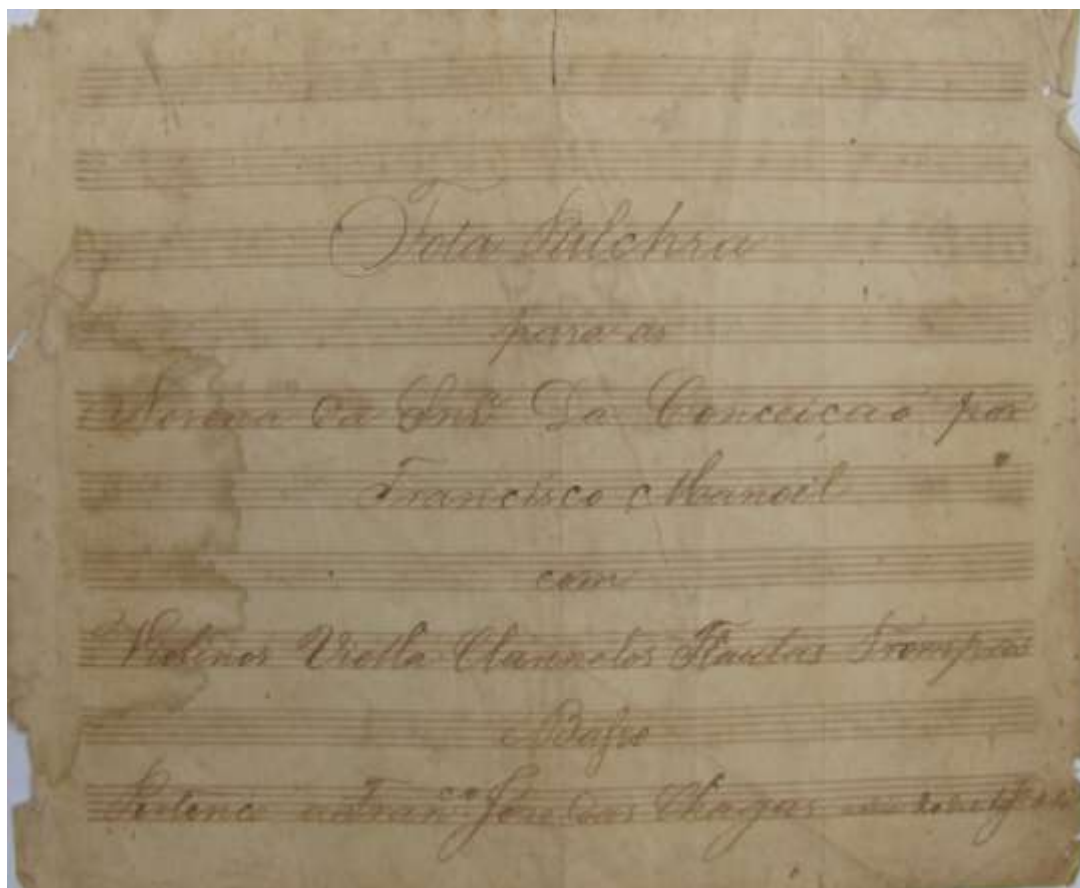 Tota Pulchra
para as
Novena da Snrª Da Conceicaó por
Francisco Manoel
com
Violinos Viella Clarinetos Flautas Trompas
e Basso
Pertence a Fran.co José das Chagas